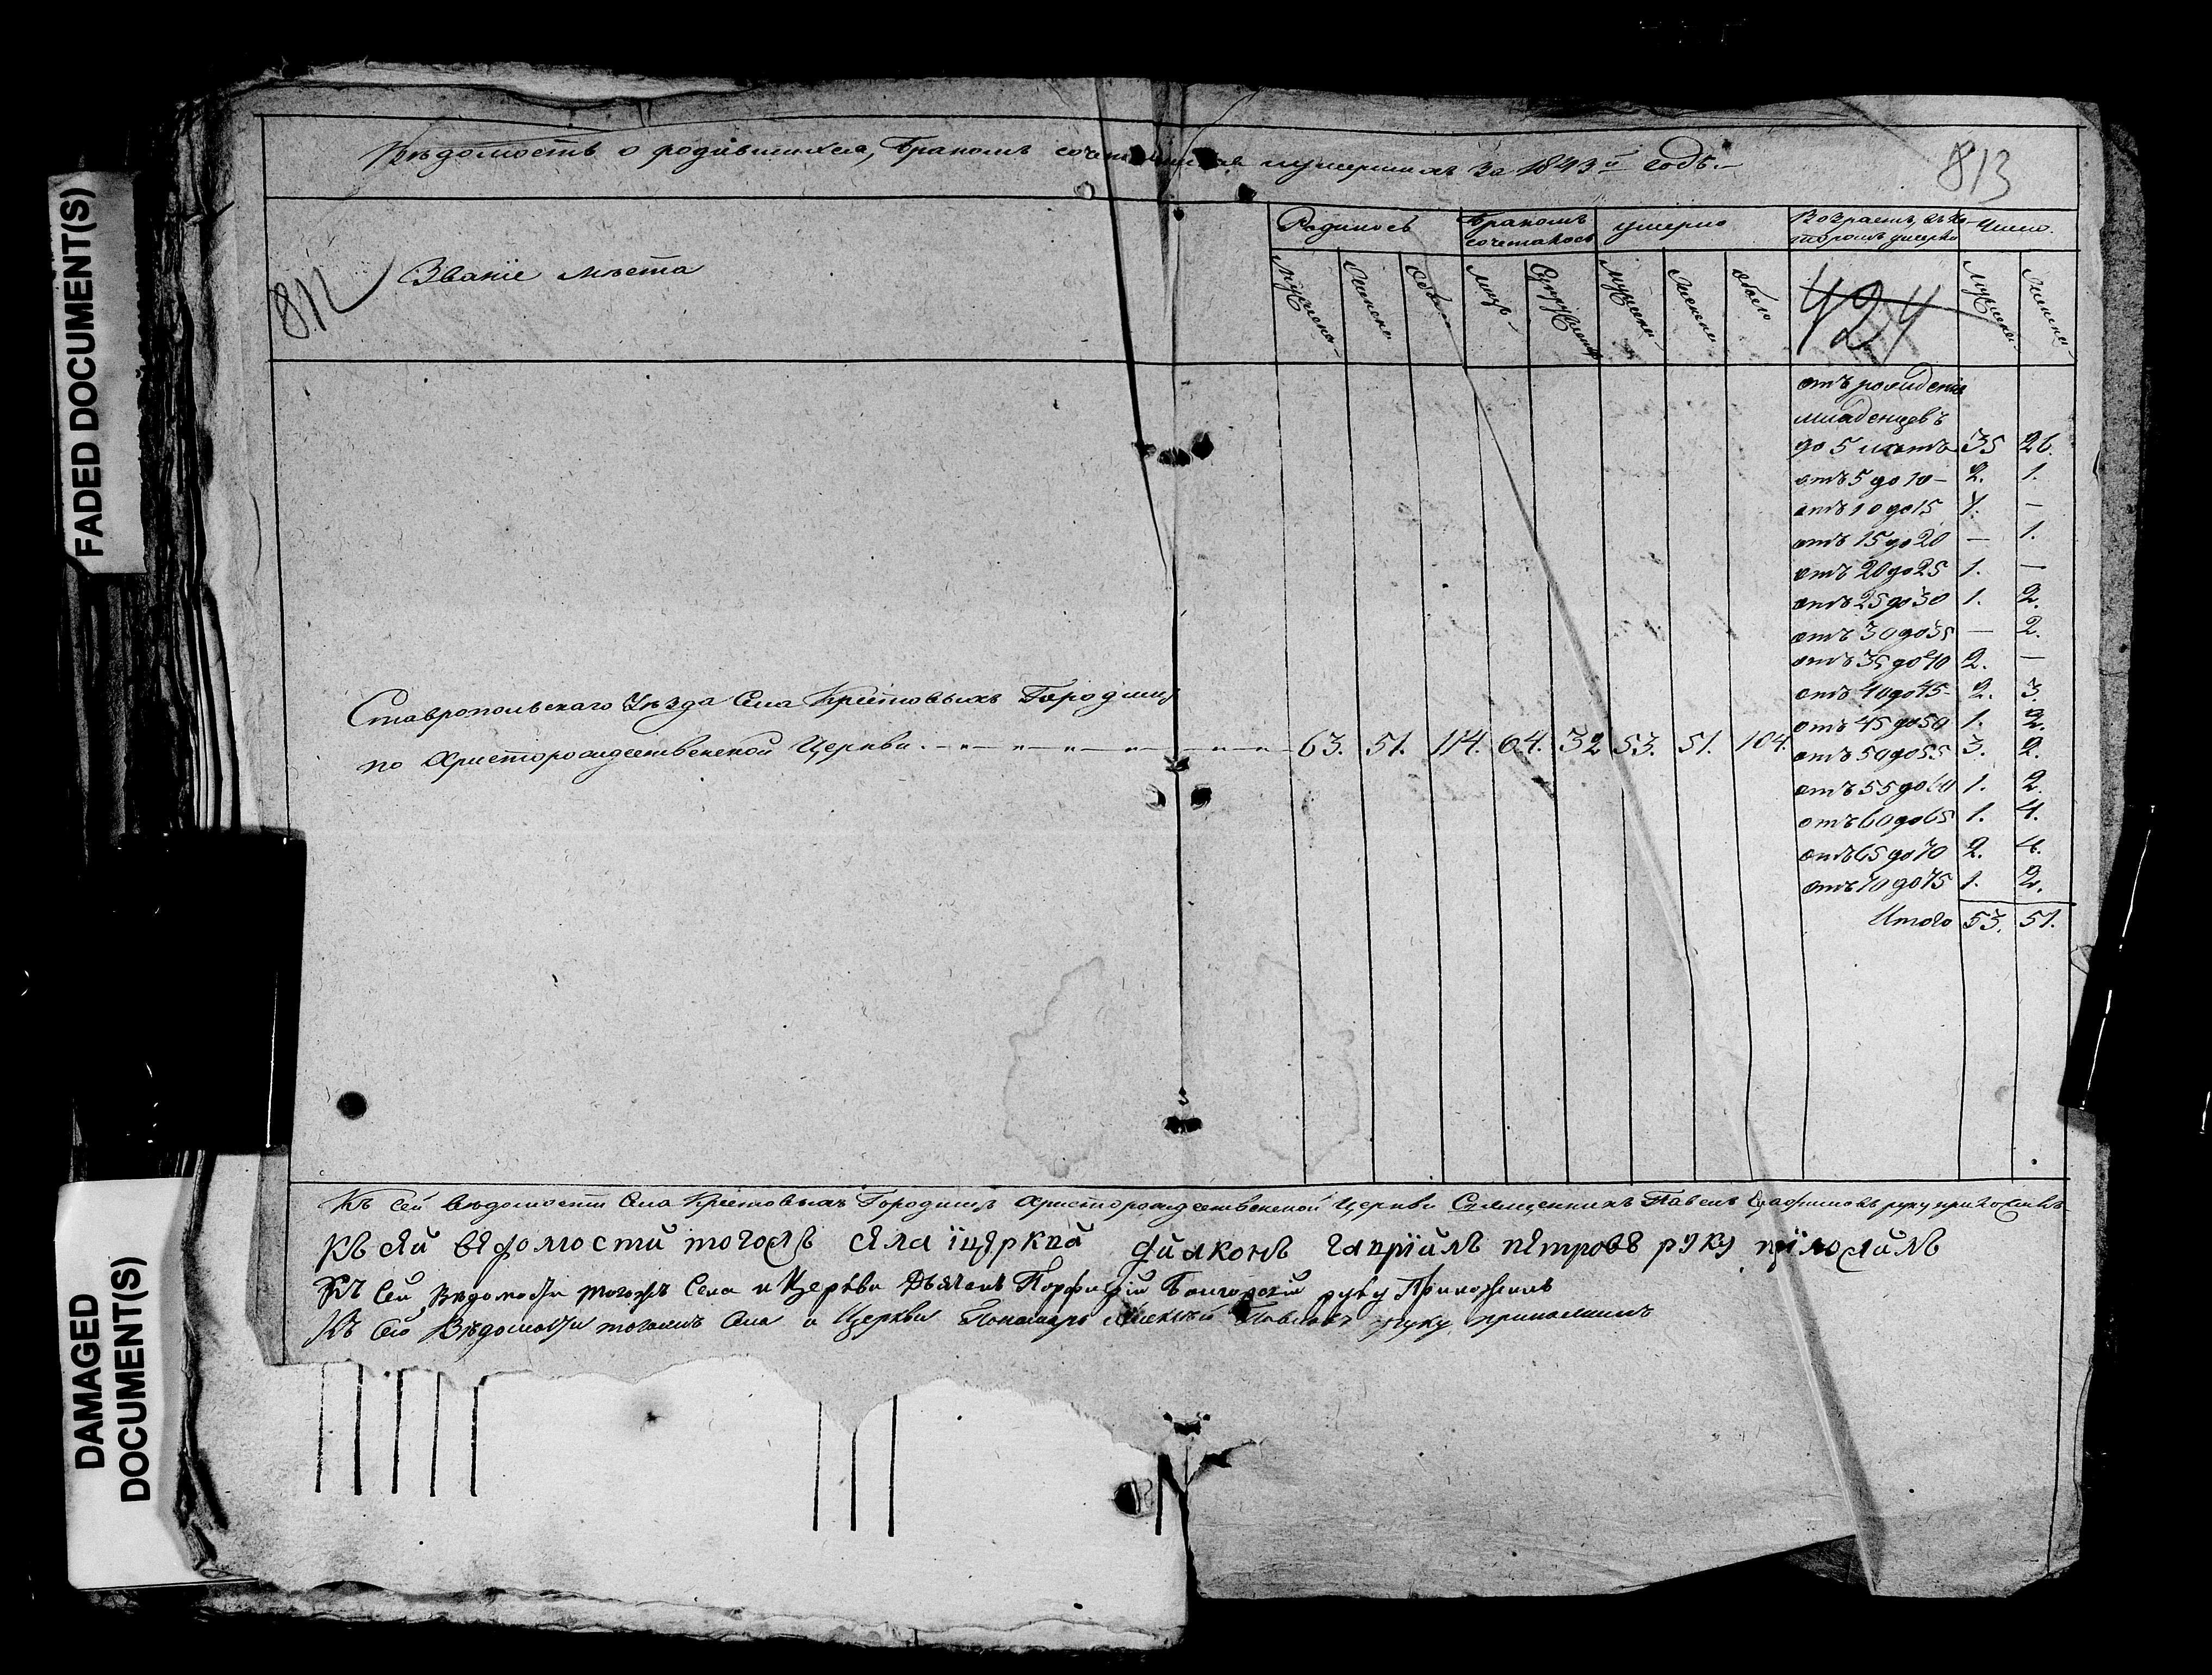 FADED DOCUMENT(S)
DAMAGED DOCUMENT(S)
Вѣдомость о родившихся, бракомъ сочетавшихся и умершихъ за 1843й годъ.
813
812
Званіе мѣста
Родилось
Бракомъ сочеталось
умерло
Возрастъ, въ ко-
торомъ умерли
Число.
Мужеска
Женска
Обоего
Лицъ
Супружествъ
Мужеска
Женска
Обоего
424
Мужеска
Женска
отъ рожденія
младенцевъ
до 5 лѣтъ 35 26.
отъ 5 до 10 – 2. 1.
отъ 10 до 15 1. –
отъ 15 до 20 – 1.
отъ 20 до 25 1. –
отъ 25 до 30 1. 2.
отъ 30 до 35 – 2.
отъ 35 до 40 2. –
отъ 40 до 45 2. 3
отъ 45 до 50 1. 2.
отъ 50 до 55 3. 2.
отъ 55 до 60 1. 2.
отъ 60 до 65 1. 4.
отъ 65 до 70 2. 4.
отъ 70 до 75 1. 2.
Итого 53. 51.
Ставропольскаго Уѣзда Села Крестовыхъ Городищъ
по Христорождественской Церкви. 63. 51. 114. 64. 32 53. 51. 104.
Къ сей вѣдомости Села Крестовыхъ Городищъ Христорождественской Церкви Священникъ Павелъ руку приложилъ
Къ сѣй вѣдомости тогожъ сѣла іцѣркви диаконъ Гавріилъ пѣтровъ руку приложилъ
Къ сей Вѣдомости тогожъ Села и Церкви Дьячекъ Порфирій руку Приложилъ
Къ сей Вѣдомости тогожъ Села и Церкви Пономарь Алексѣй Павловъ руку приложилъ